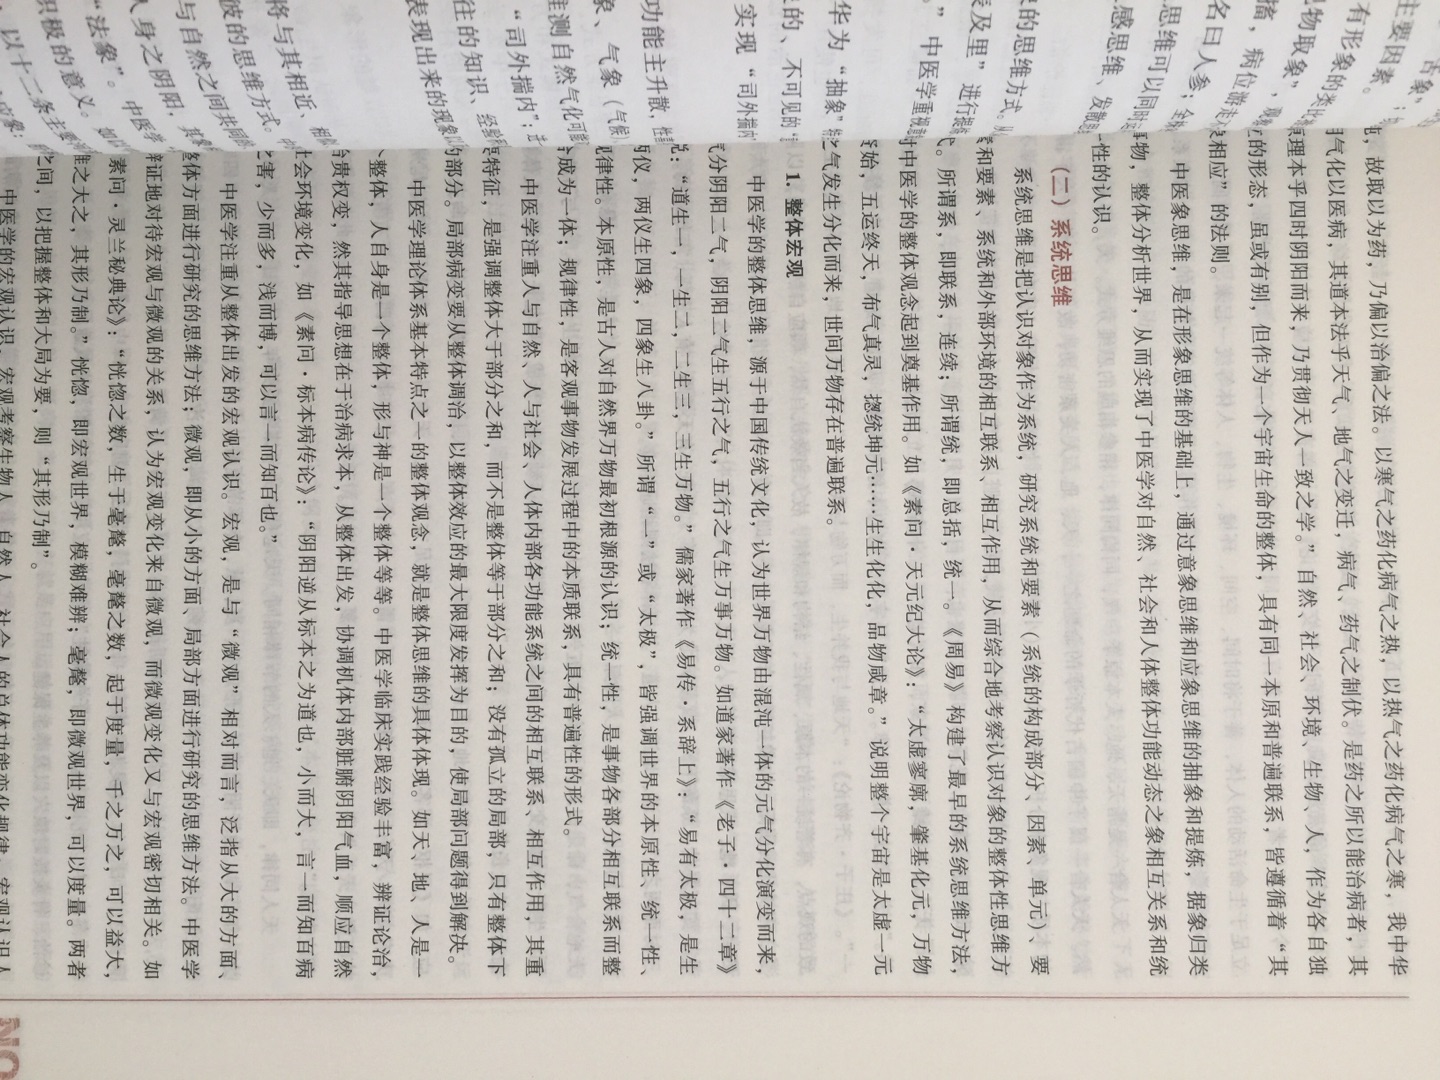 舌象”；
主要因素。
有形象的类比
见物取象”，观
描，病位游走
名曰人参；全
思维可以同时
感思维、发散
的思维方式。从
表及里”进行
。”中医学重视
华为“抽象”
的、不可见的
实现“司外揣内
功能主升散，性
象、气象（气候
推测自然气化可能
“司外揣内”；
往的知识、经验
表现出来的现象
将与其相近、相
的思维方式。
与自然之间共同
人身之阴阳，其
“法象”。中医
积极的意义。如
以十二条主要
，故取以为药，乃偏以治偏之法。以寒气之药化病气之热，以热气之药化病气之寒，我中华
用气化以医病，其道本法乎天气、地气之变迁，病气、药气之制伏。是药之所以能治病者，其
原理本乎四时阴阳而来，乃贯彻天人一致之学。”自然、社会、环境、生物、人，作为各自独
立的形态，虽或有别，但作为一个宇宙生命的整体，具有同一本原和普遍联系，皆遵循着“其
相应”的法则。
中医象思维，是在形象思维的基础上，通过意象思维和应象思维的抽象和提炼，据象归类
事物，整体分析世界，从而实现了中医学对自然、社会和人体整体功能动态之象相互关系和统
一性的认识。
（二）系统思维
系统思维是把认识对象作为系统，研究系统和要素（系统的构成部分、因素、单元）、要
素和要素、系统和外部环境的相互联系、相互作用，从而综合地考察认识对象的整体性思维方
式。所谓系，即联系，连续；所谓统，即总括，统一。《周易》构建了最早的系统思维方法，
对中医学的整体观念起到奠基作用。如《素问·天元纪大论》：“太虚寥廓，肇基化元，万物
资始，五运终天，布气真灵，揔统坤元……生生化化，品物咸章。”说明整个宇宙是太虚一元
之气发生分化而来，世间万物存在普遍联系。
1. 整体宏观
中医学的整体思维，源于中国传统文化，认为世界万物由混沌一体的元气分化演变而来，
气分阴阳二气，阴阳二气生五行之气，五行之气生万事万物。如道家著作《老子·四十二章》
说：“道生一，一生二，二生三，三生万物。”儒家著作《易传·系辞上》：“易有太极，是生
两仪，两仪生四象，四象生八卦。”所谓“一”或“太极”，皆强调世界的本原性、统一性、
规律性。本原性，是古人对自然界万物最初根源的认识；统一性，是事物各部分相互联系而整
合成为一体；规律性，是客观事物发展过程中的本质联系，具有普遍性的形式。
中医学注重人与自然、人与社会、人体内部各功能系统之间的相互联系、相互作用，其重
要特征，是强调整体大于部分之和，而不是整体等于部分之和；没有孤立的局部，只有整体下
的部分。局部病变要从整体调治，以整体效应的最大限度发挥为目的，使局部问题得到解决。
中医学理论体系基本特点之一的整体观念，就是整体思维的具体体现。如天、地、人是一
个整体，人自身是一个整体，形与神是一个整体等等。中医学临床实践经验丰富，辨证论治，
治贵权变，然其指导思想在于治病求本，从整体出发，协调机体内部脏腑阴阳气血，顺应自然
社会环境变化，如《素问·标本病传论》：“阴阳逆从标本之为道也，小而大，言一而知百病
之害，少而多，浅而博，可以言一而知百也。”
中医学注重从整体出发的宏观认识。宏观，是与“微观”相对而言，泛指从大的方面、
整体方面进行研究的思维方法；微观，即从小的方面、局部方面进行研究的思维方法。中医学
辩证地对待宏观与微观的关系，认为宏观变化来自微观，而微观变化又与宏观密切相关。如
《素问·灵兰秘典论》：“恍惚之数，生于毫氂，毫氂之数，起于度量，千之万之，可以益大，
推之大之，其形乃制。”恍惚，即宏观世界，模糊难辨；毫氂，即微观世界，可以度量。两者
之间，以把握整体和大局为要，则“其形乃制”。
中医学的宏观认识，宏观考察生物人、自然人、社会人的总体功能变化规律，宏观认识人